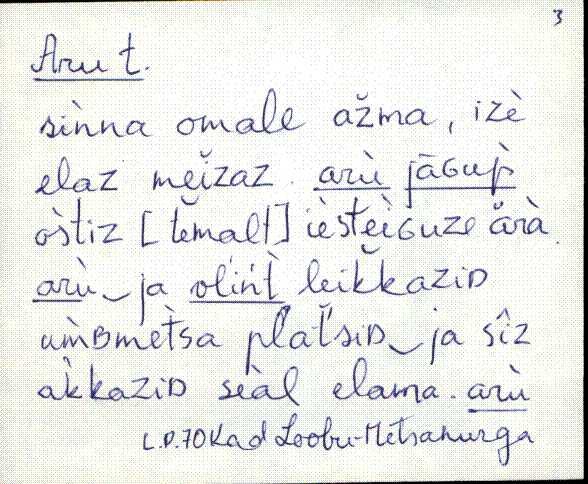 3
Aru t.
sìnna omale ažma, izè
elaz meĭzaz. arù jāɢup̀
òstiz [tĕmalt] ièstèìɢuze ărà.
arù‿ja olińt̀ leikkaziᴅ
um̀ʙmet̀sa plat̆siᴅ‿ja sîz
ak̀kaziᴅ seàl elama. arù
L.P. 70 Kad Loobu-Metsanurga